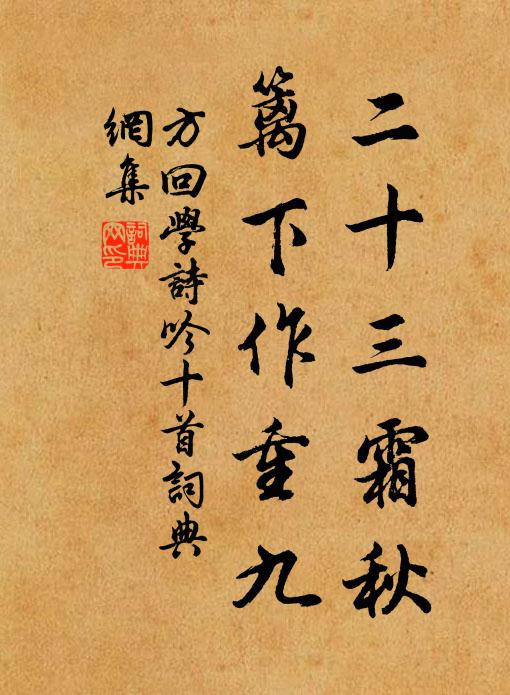 二十三霜秋
篱下作重九
方回學詩吟十首詞典
網集
詞典
网印